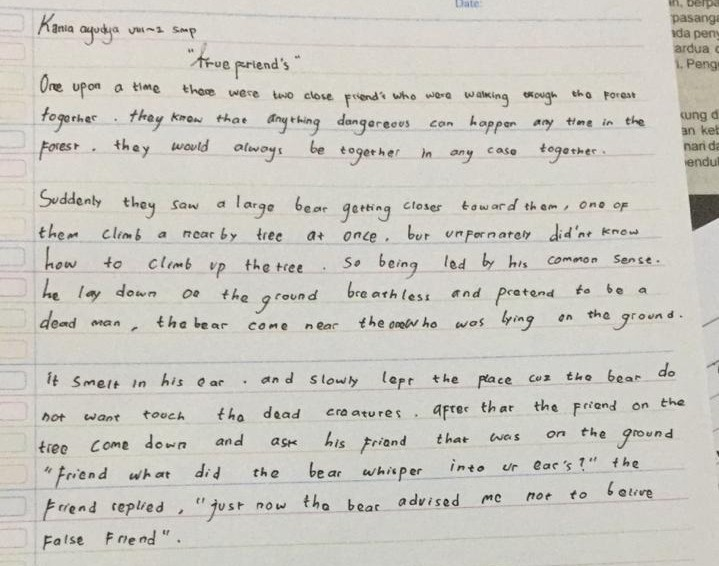 Date:
Kania ayudya VIII-2 SMP
"True friend's"
One upon a time there were two close friend's who were walking trough the forest
togerher . they know that anything dangereous can happen any time in the
forest . they would always be together in any case together .
Suddenly they saw a large bear getting closer toward them , one of
them climb a near by tree at once , but unfornately did'nt know
how to climb up the tree . So being led by his common sense .
he lay down oe the ground breathless and pretend to be a
dead man , the bear come near the one who was lying on the ground .
it smelt in his ear . and slowly left the place cuz the bear do
not want touch the dead creatures . after that the friend on the
tree come down and ask his friend that was on the ground
"friend what did the bear whisper into ur ear's ?" the
friend replied , "just now the bear advised me not to belive
False Friend" .
in, berpa
pasanga
ada peny
ardua
. Peng
kung d
an ket
nari da
endul